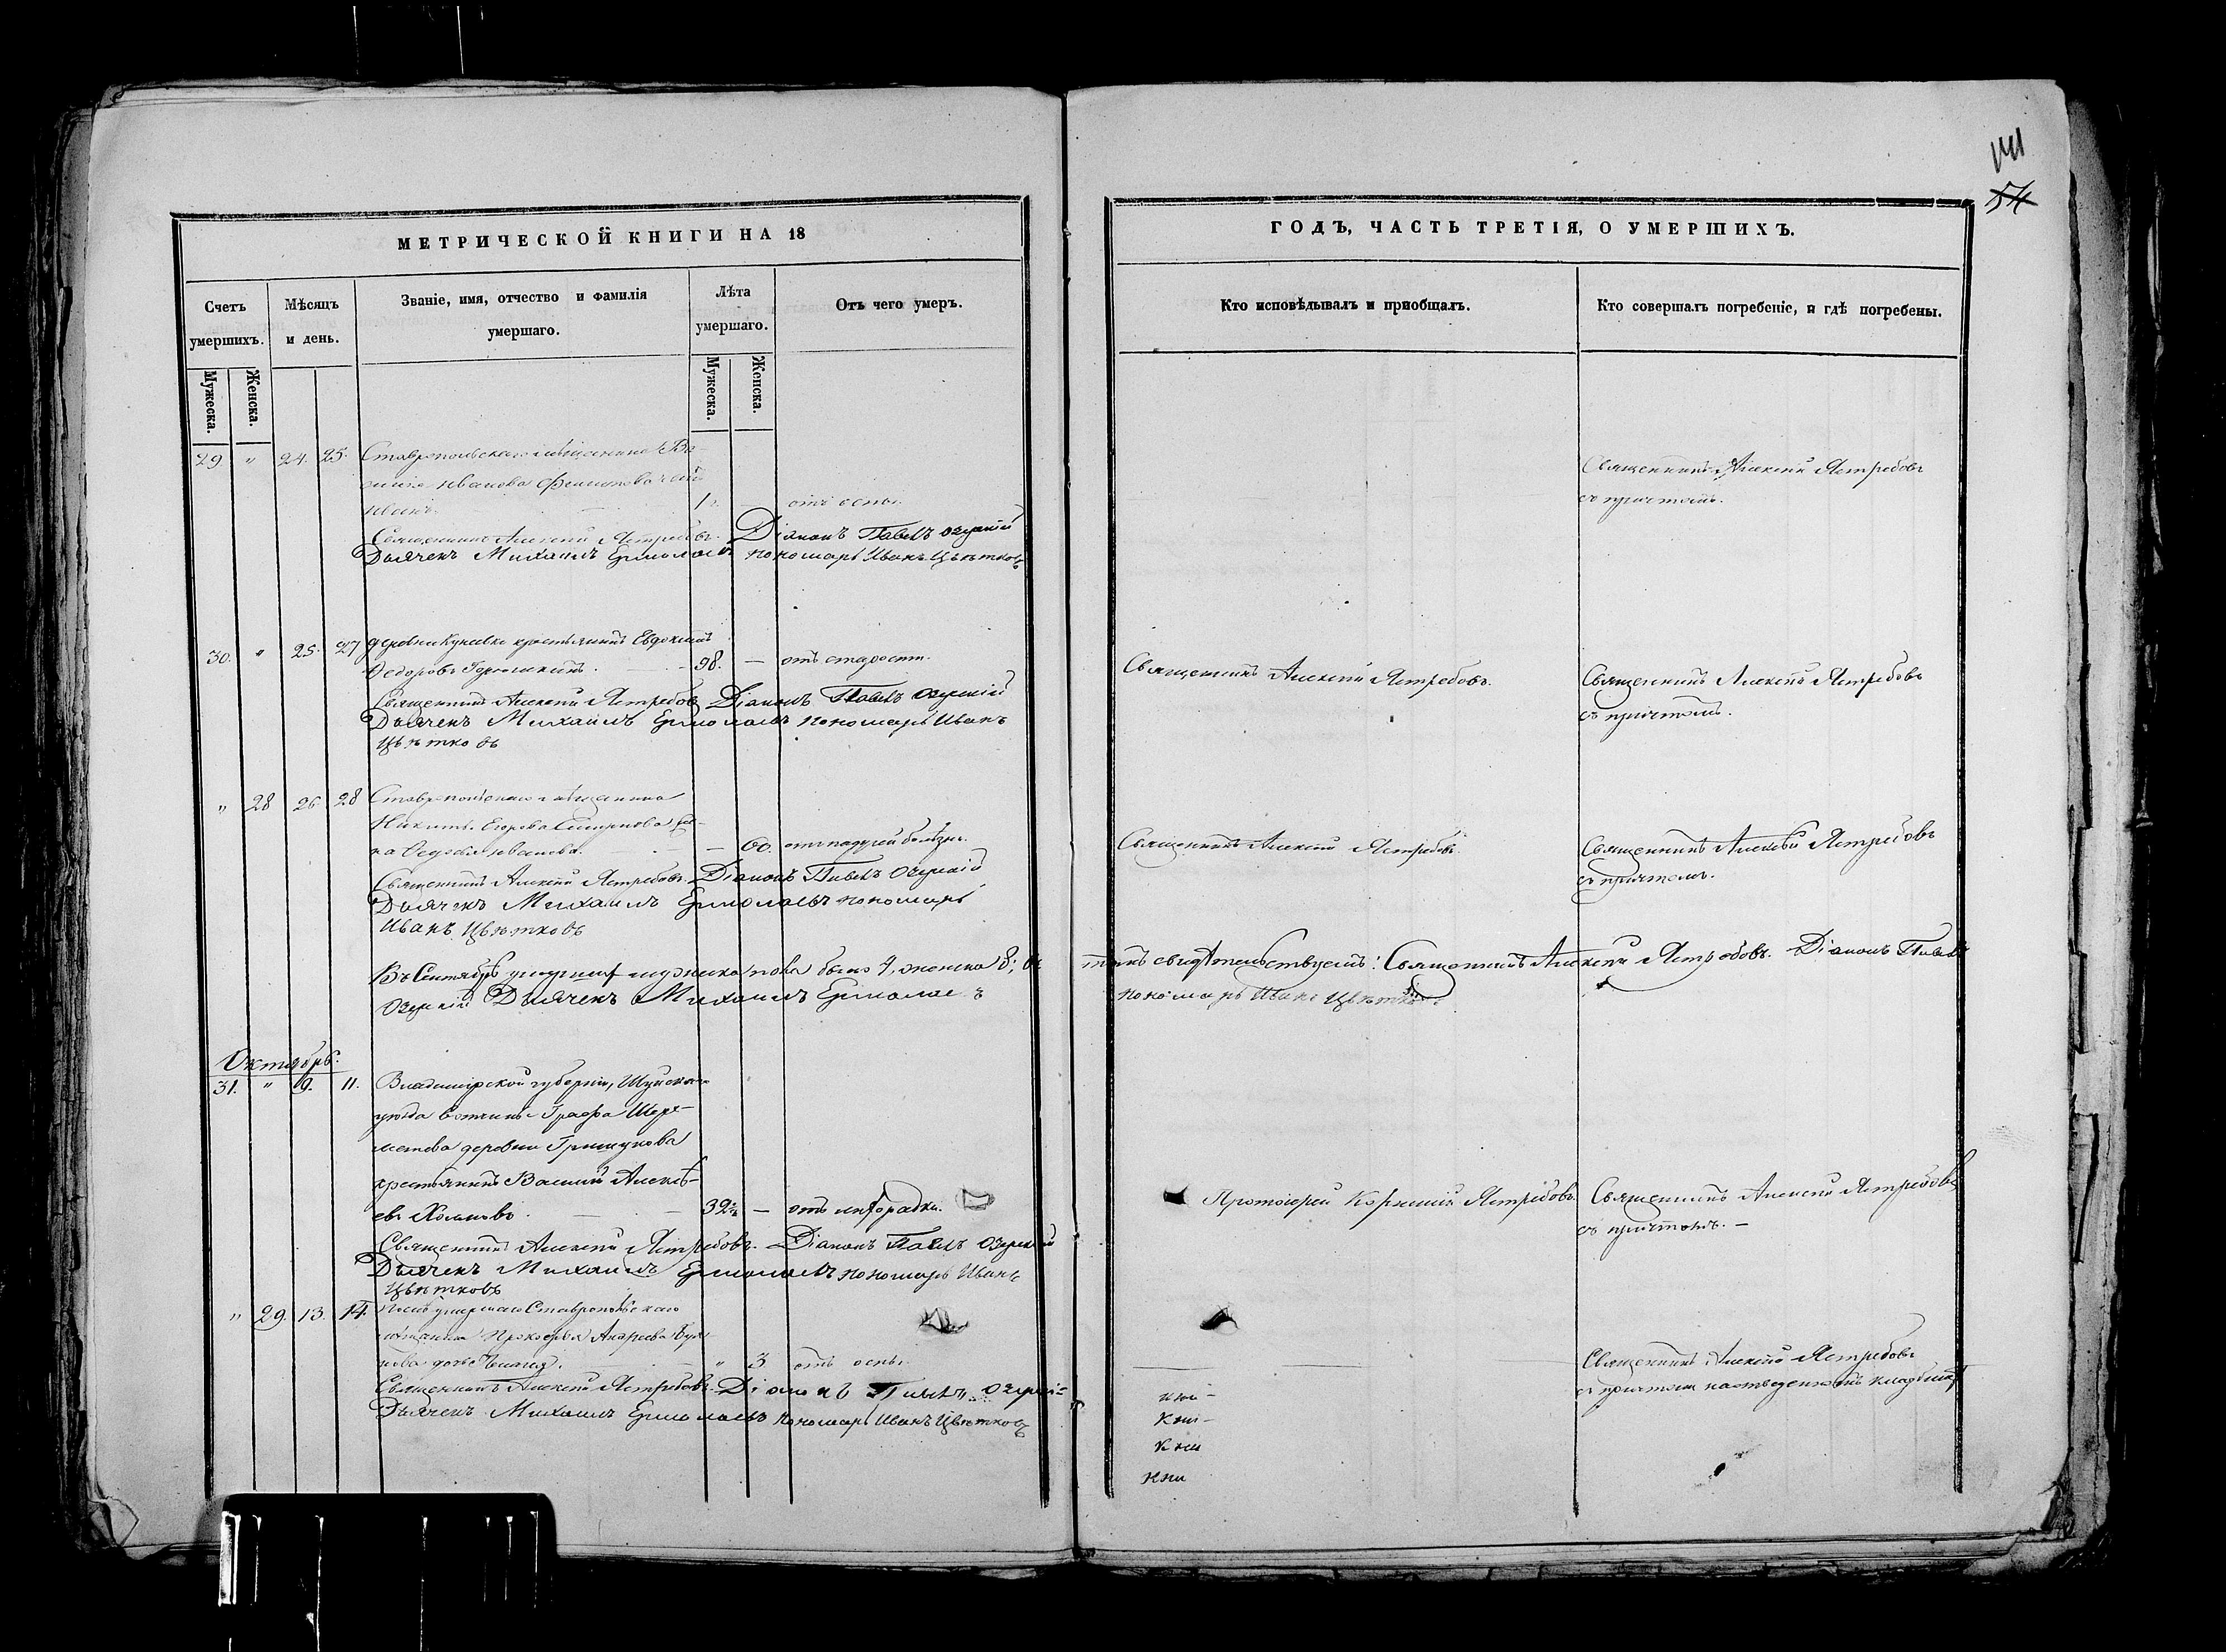 141
54
МЕТРИЧЕСКОЙ КНИГИ НА 18
ГОДЪ, ЧАСТЬ ТРЕТІЯ, О УМЕРШИХЪ.
Счетъ умершихъ.
Мѣсяцъ и день.
Званіе, имя, отчество и фамилія
умершаго.
Лѣта умершаго.
Отъ чего умеръ.
Кто исповѣдывалъ и пріобщалъ.
Кто совершалъ погребеніе, и гдѣ погребены.
Мужеска.
Женска.
Мужеска.
Женска.
29 " 24. 25. Ставропольскаго мѣщанина Ва-
силія Иванова Филипова сынъ
Иванъ. отъ оспы.
Священникъ Алексѣй Ястребовъ
съ причтомъ.
Священникъ Алексѣй Ястребовъ. Діаконъ Павелъ Озерскій
Дьячекъ Михаилъ Ермолаевъ пономарь Иванъ Цвѣтковъ
30. " 25. 27 деревни Куневки крестьянинъ Евдокимъ
Федоровъ 98. — отъ старости.
Священникъ Алексѣй Ястребовъ.
Священникъ Алексѣй Ястребовъ
съ причтомъ.
Священникъ Алексѣй Ястребовъ Діаконъ Павелъ Озерскій
Дьячекъ Михаилъ Ермолаевъ пономарь Иванъ
Цвѣтковъ
" 28 26 28 Ставропольскаго мѣщанина
Никиты Егорова Смирнова же-
на Иванова. — 60. отъ падучей болѣзни.
Священникъ Алексѣй Ястребовъ.
Священникъ Алексѣй Ястребовъ
съ причтомъ.
Священникъ Алексѣй Ястребовъ. Діаконъ Павелъ Озерскій
Дьячекъ Михаилъ Ермолаевъ пономарь
Иванъ Цвѣтковъ
Въ Сентябрѣ умершихъ мужеска пола было 4, женска 8; въ
томъ свидѣтельствуемъ: Священникъ Алексѣй Ястребовъ. Діаконъ Павелъ
Озерскій Дьячекъ Михаилъ Ермолаевъ
пономарь Иванъ Цвѣтковъ
Октябрь.
31. " 9. 11. Владимірской губерніи, Шуйскаго
уѣзда вотчины Графа Шере-
метева деревни
крестьянинъ Василій Алексѣ-
евъ 39 — отъ лихорадки.
Протоіерей Ястребовъ.
Священникъ Алексѣй Ястребовъ
съ причтомъ. —
Священникъ Алексѣй Ястребовъ. Діаконъ Павелъ Озерскій
Дьячекъ Михаилъ Ермолаевъ пономарь Иванъ
Цвѣтковъ
" 29. 13. 14. Послѣ умершаго Ставропольскаго
мѣщанина Прокофья Андреева
дочь " 3 отъ оспы.
Священникъ Алексѣй Ястребовъ
съ причтомъ на отведенномъ кладбищѣ
Священникъ Алексѣй Ястребовъ. Діаконъ Павелъ Озерскій
Дьячекъ Михаилъ Ермолаевъ пономарь Иванъ Цвѣтковъ